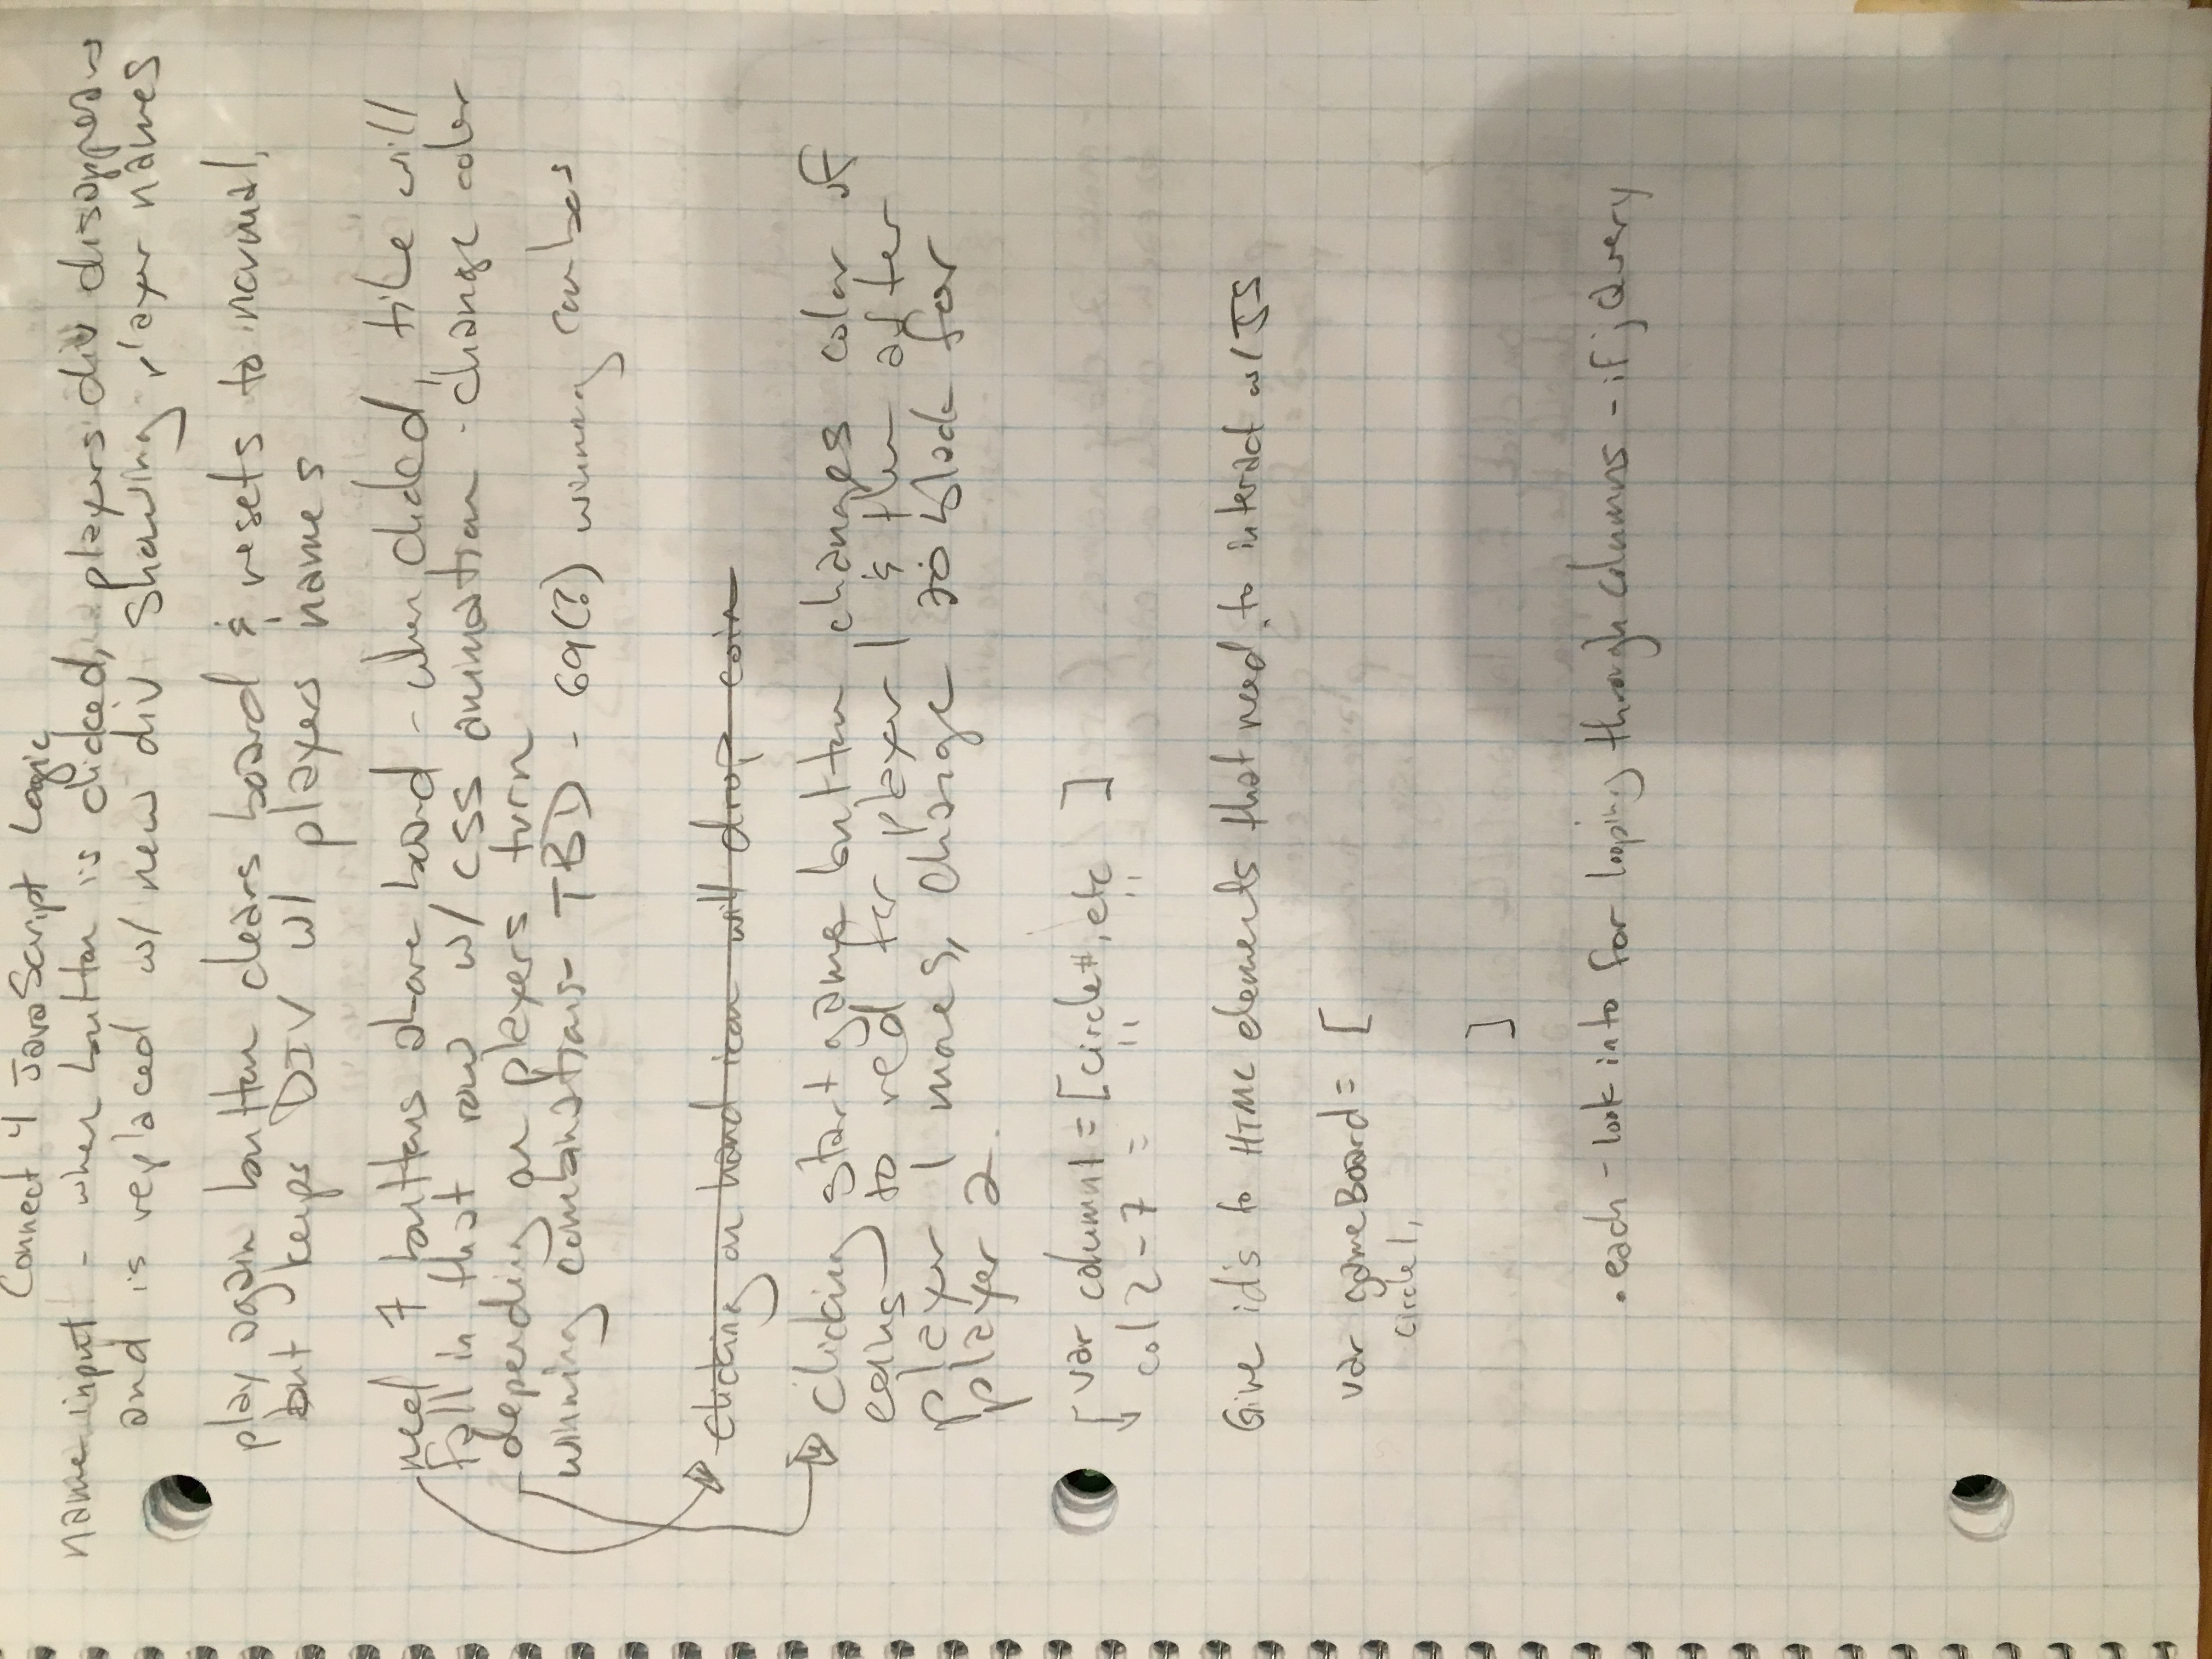 Connect 4 JavaScript Logic
name input - when button is clicked, players div disappears
and is replaced w/ new div showing player names
play again button clears board & resets to normal,
but keeps DIV w/ players names
need 7 buttons above board - when clicked, tile will
fall in that row w/ CSS animation - change color
depending on players turn
winning combinations - TBD - 69(?) winning combos
clicking on hand icon will drop coin
clicking start game button changes color of
coins to red for player 1 & then after
player 1 moves, change to black for
player 2.
var column1 = [circle#, etc ]
col 2 - 7 = " "
Give id's to HTML elements that need to interact w/ JS
var gameBoard = [
circle 1,
]
.each - look into for looping through columns - if jQuery